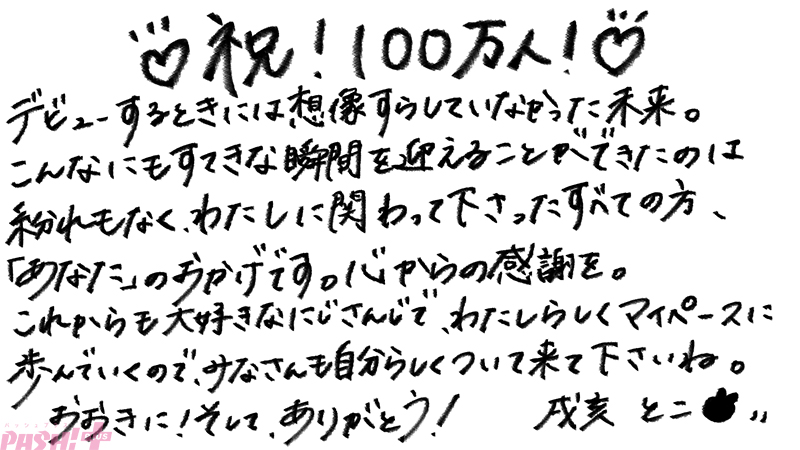 祝!100万人!
デビューするときには想像すらしていなかった未来。
こんなにもすてきな瞬間を迎えることができたのは
紛れもなく、わたしに関わって下さったすべての方、
「あなた」のおかげです。心からの感謝を。
これからも大好きなにじさんじで、わたしらしくマイペースに
歩んでいくので、みなさんも自分らしくついて来て下さいね。
おおきに!そして、ありがとう!
戌亥 とこ
PASH! PLUS